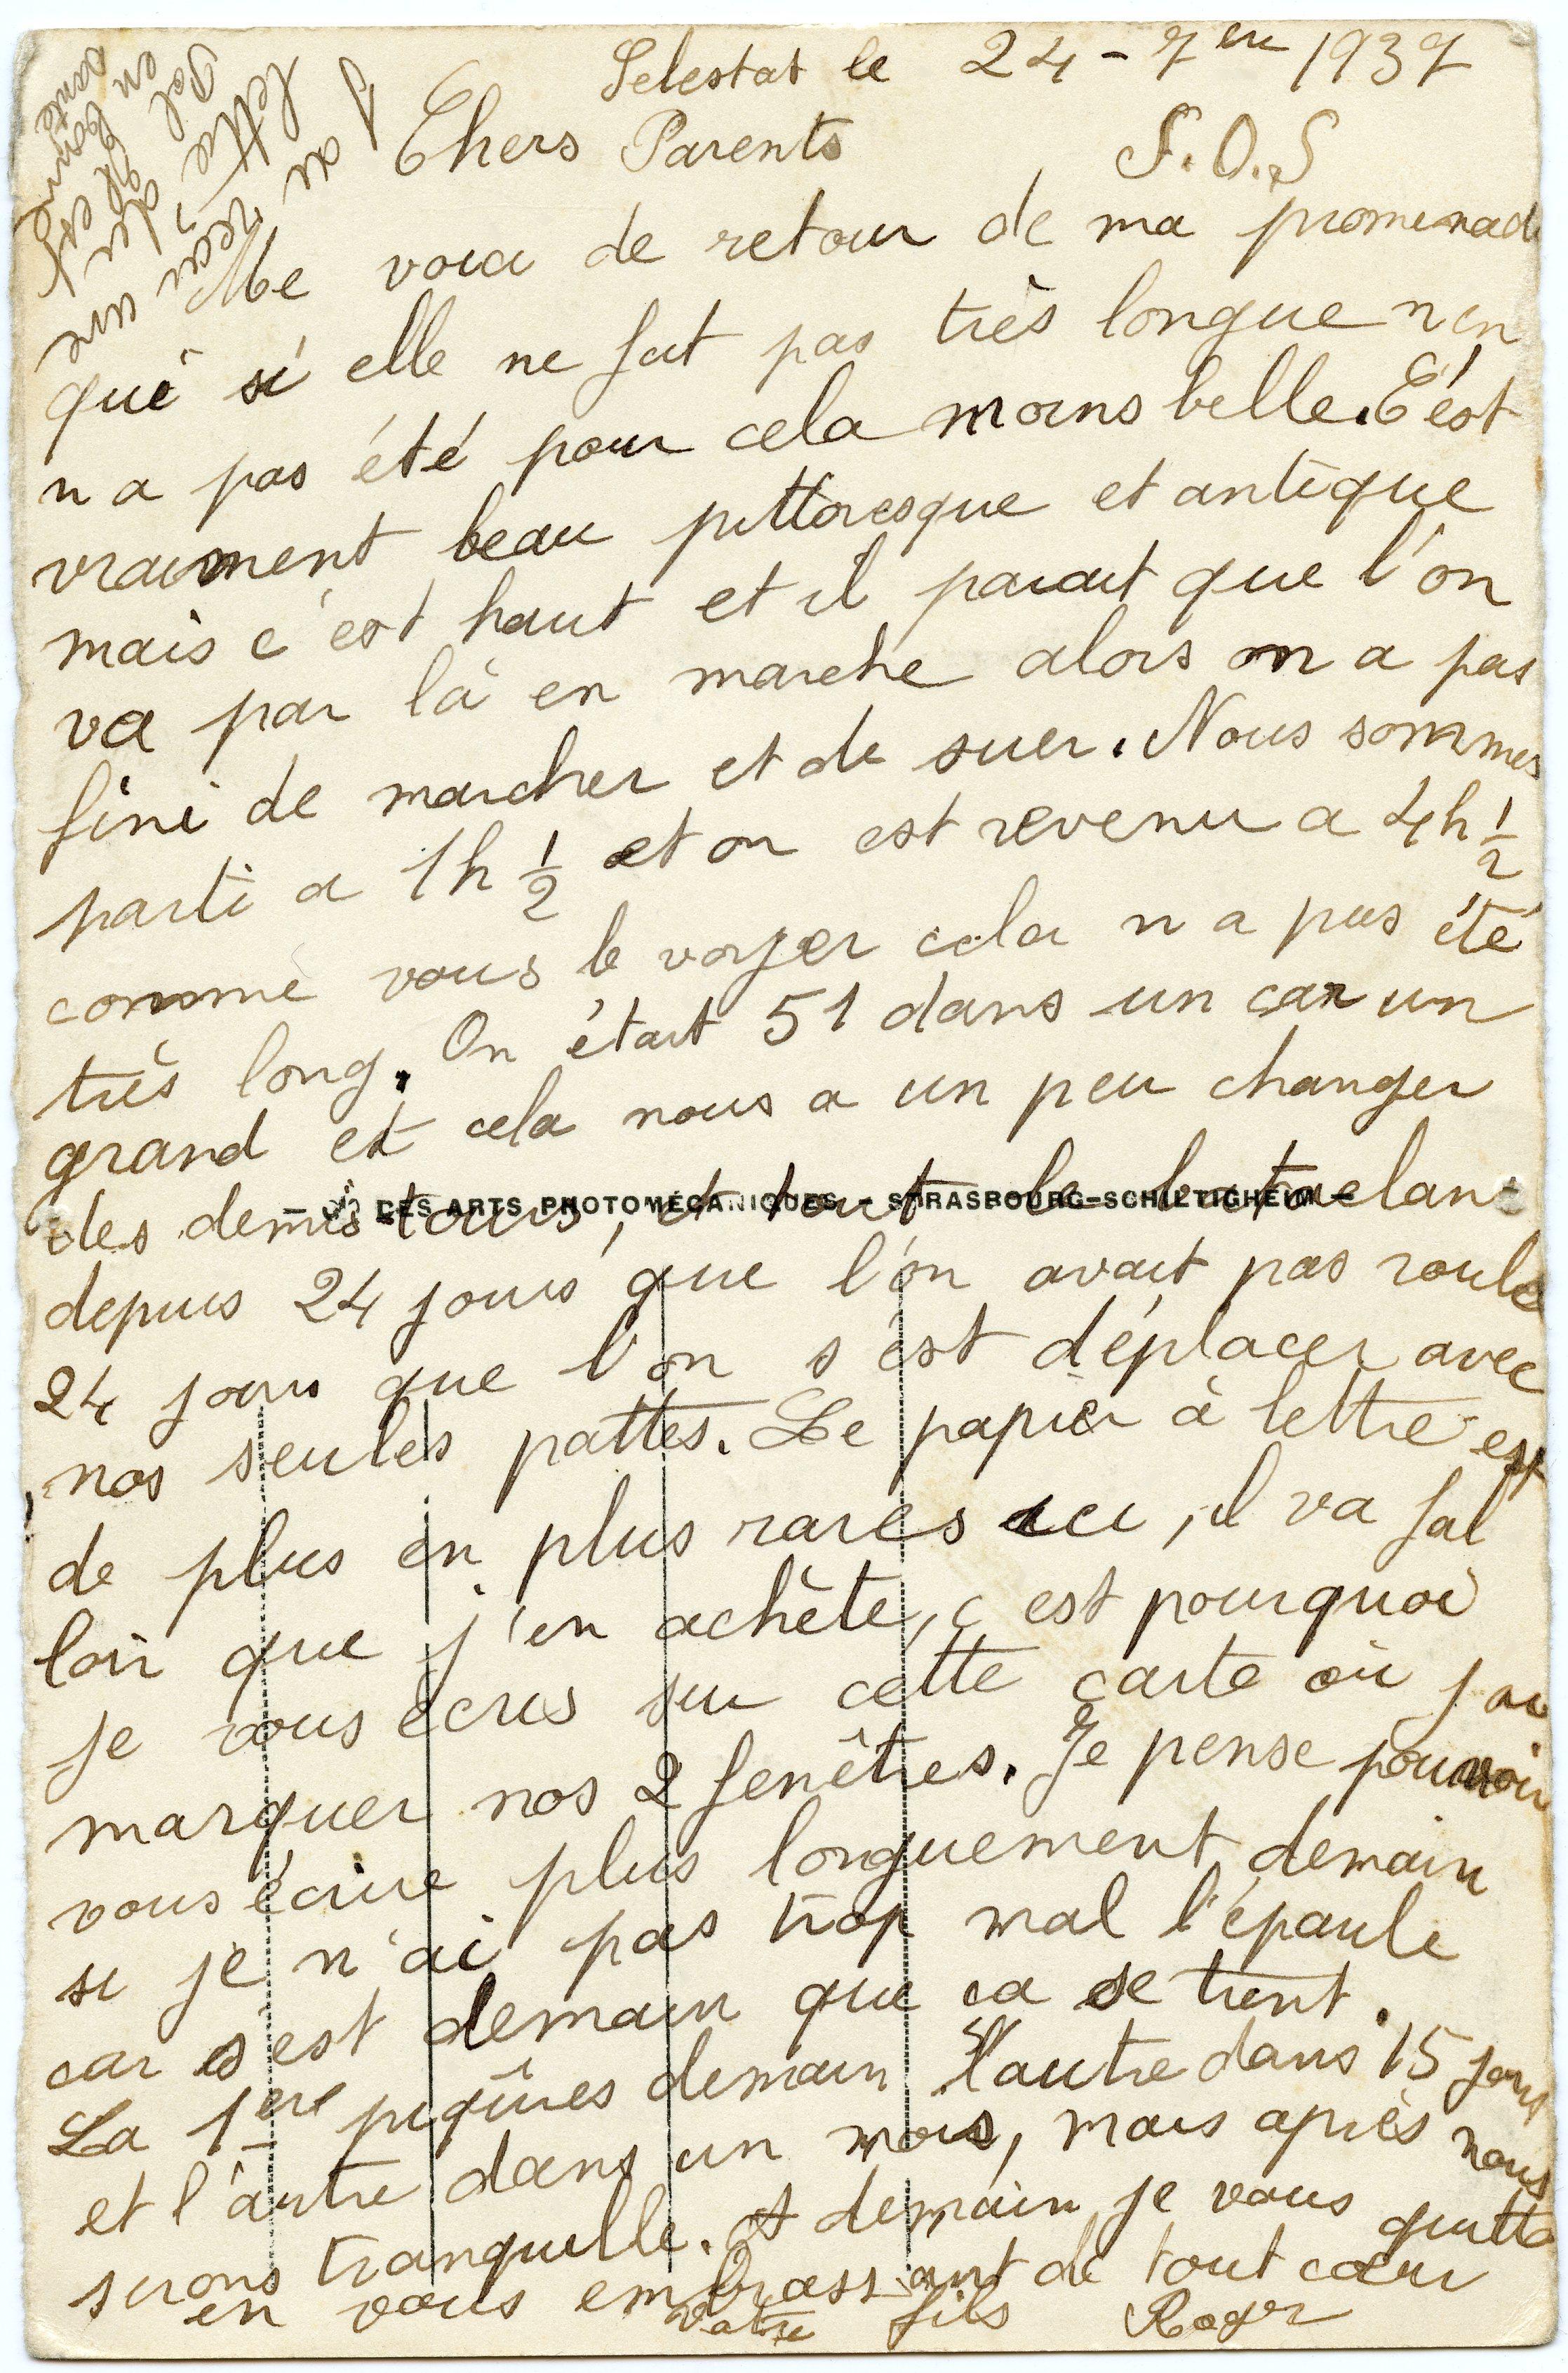 Selestat le 24-7bre 1937
Chers Parents S.O.S
Me voici de retour de ma promenade
qui si elle ne fut pas très longue n'en
n a pas été pour cela moins belle. C'est
vraiment beau pittoresque et antique
mais c'est haut et il parait que l'on
va par là en marche alors on a pas
fini de marcher et de suer. Nous sommes
parti a 1h ½ et on est revenu a 4h ½
comme vous le voyer cela n a pas été
très long. On était 51 dans un car un
grand et cela nous a un peu changer
des demis-tours, et tout le
depuis 24 jours que l'on avait pas roulé
24 jours que l'on s'est déplacer avec
nos seules pattes. Le papier à lettre est
de plus en plus rares ici, il va fal
loir que j'en achète, c est pourquoi
je vous écris sur cette carte où j ai
marquer nos 2 fenêtres. Je pense pouvoir
vous écrire plus longuement demain
si je n'ai pas trop mal l'épaule
car s'est demain que ca se tient.
La 1ère piqûres demain l'autre dans 15 jours
et l'autre dans un mois, mais après nous
serons tranquille. A demain je vous quitte
en vous embrassant de tout cœur
votre fils Roger
J ai reçu une
lettre du
Pol, il est
en bonne
santé
DES ARTS PHOTOMÉCANIQUES - STRASBOURG-SCHILTIGHEIM -